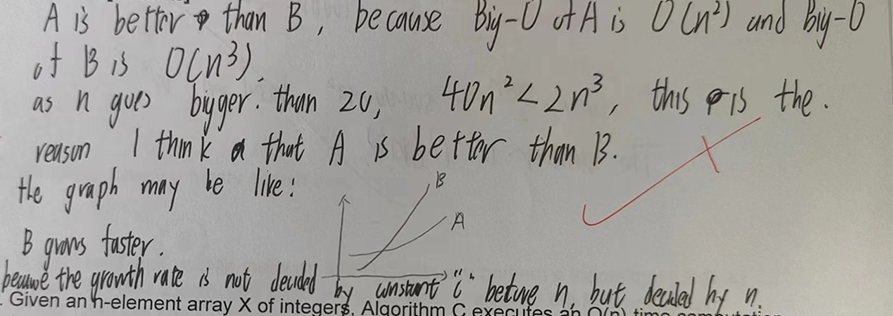 A is better than B, because Big-O of A is O(n²) and Big-O
of B is O(n³).
as n goes bigger. than 20, 40n² < 2n³, this is the.
reason I think that A is better than B.
the graph may be like:
B
A
B grows faster.
because the growth rate is not decided by constant "c" before n, but decided by n.
. Given an n-element array X of integers, Algorithm C executes an O(n) time computation